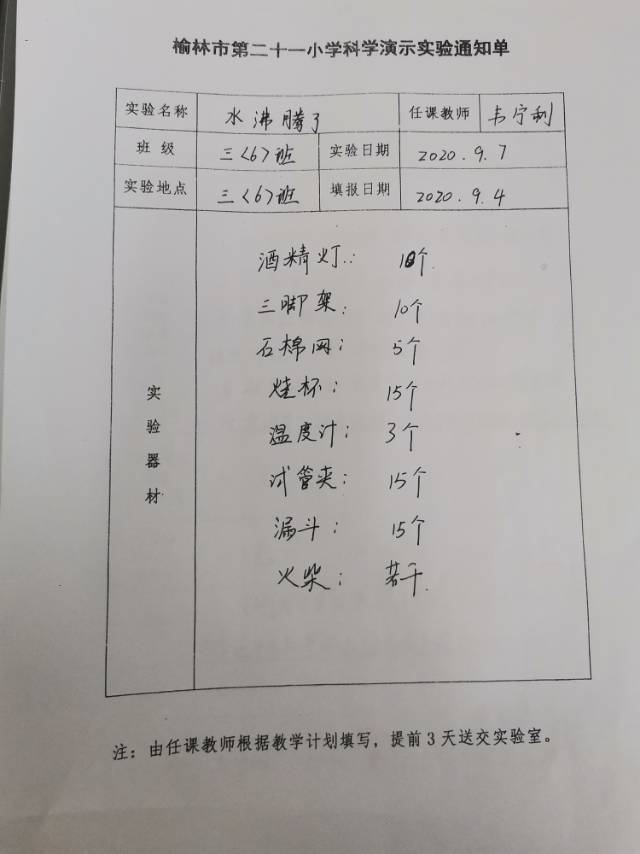 榆林市第二十一小学科学演示实验通知单
实验名称 水沸腾了 任课教师 韦宁利
班级 三<6>班 实验日期 2020.9.7
实验地点 三<6>班 填报日期 2020.9.4
实验器材
酒精灯: 10个
三脚架: 10个
石棉网: 5个
烧杯: 15个
温度计: 3个
试管夹: 15个
漏斗: 15个
火柴: 若干
注:由任课教师根据教学计划填写,提前3天送交实验室。